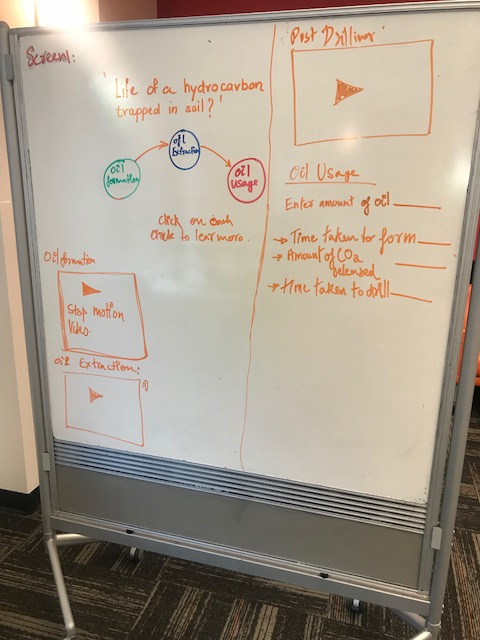 Screen1:
'Life of a hydrocarbon
trapped in soil?'
Oil
formation
Oil
Extraction
Oil
Usage
Click on each
Circle to learn more.
Oil formation
Stop motion
Video.
Oil Extraction:
Post Drilling
Oil Usage
Enter amount of oil
→ Time taken to form
→ Amount of CO2
released
→ Time taken to drill